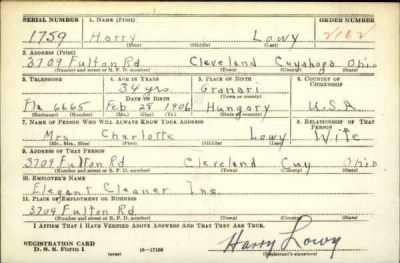 SERIAL NUMBER 1. NAME (Print) ORDER NUMBER
1759 Harry Lowy 2162
(First) (Middle) (Last)
2. ADDRESS (Print)
3709 Fulton Rd Cleveland Cuyahoga Ohio
(Number and street or R. F. D. number) (Town) (County) (State)
3. TELEPHONE 4. AGE IN YEARS 5. PLACE OF BIRTH 6. COUNTRY OF CITIZENSHIP
34 yrs. Gromari
DATE OF BIRTH (Town or county)
Fla 6665 Feb 28 1906 Hungory U.S.A
(Exchange) (No.) (Mo.) (Day) (Yr.) (State or country)
7. NAME OF PERSON WHO WILL ALWAYS KNOW YOUR ADDRESS 8. RELATIONSHIP OF THAT PERSON
Mrs Charlotte Lowy Wife
(Mr., Mrs., Miss) (First) (Middle) (Last)
9. ADDRESS OF THAT PERSON
3709 Fulton Rd Cleveland Cuy Ohio
(Number and street or R. F. D. number) (Town) (County) (State)
10. EMPLOYER'S NAME
Elegant Cleaner Inc
11. PLACE OF EMPLOYMENT OR BUSINESS
3709 Fulton Rd
(Number and street or R. F. D. number) (Town) (County) (State)
I AFFIRM THAT I HAVE VERIFIED ABOVE ANSWERS AND THAT THEY ARE TRUE.
REGISTRATION CARD
D. S. S. Form 1 (over) 16—17105 Harry Lowy